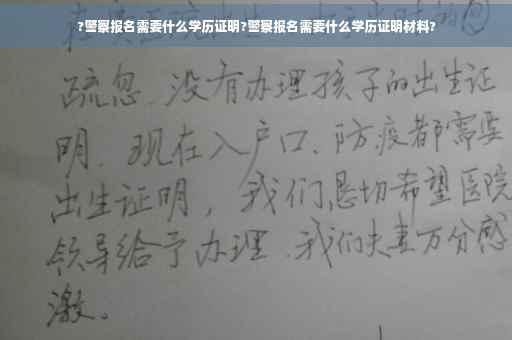 ?警察报名需要什么学历证明?警察报名需要什么学历证明材料?
疏忽、没有办理孩子的出生证
明、现在入户口、防疫都需要
出生证明，我们恳切希望医院
领导给予办理、我们夫妻万分感
激。